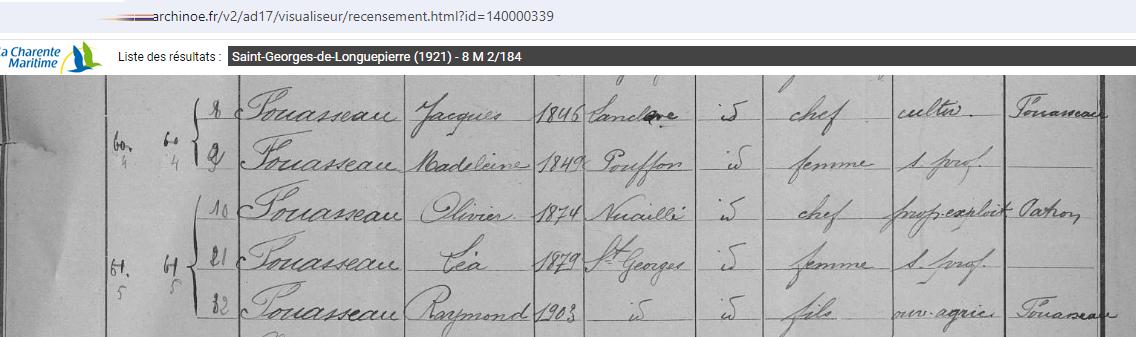 archinoe.fr/v2/ad17/visualiseur/recensement.html?id=140000339
La Charente
Maritime
Liste des résultats : Saint-Georges-de-Longuepierre (1921) - 8 M 2/184
60. 60 8 Fouasseau Jacques 1846 id chef cultiv. Fouasseau
4 4 Fouasseau Madeleine 1849 Pouffon id femme s. prof.
10 Fouasseau Olivier 1874 Nuaillé id chef prop. exploit Patron
61. 61 21 Fouasseau Léa 1879 St Georges id femme s. prof.
5 5 32 Fouasseau Raymond 1903 id id fils ouv. agric Fouasseau